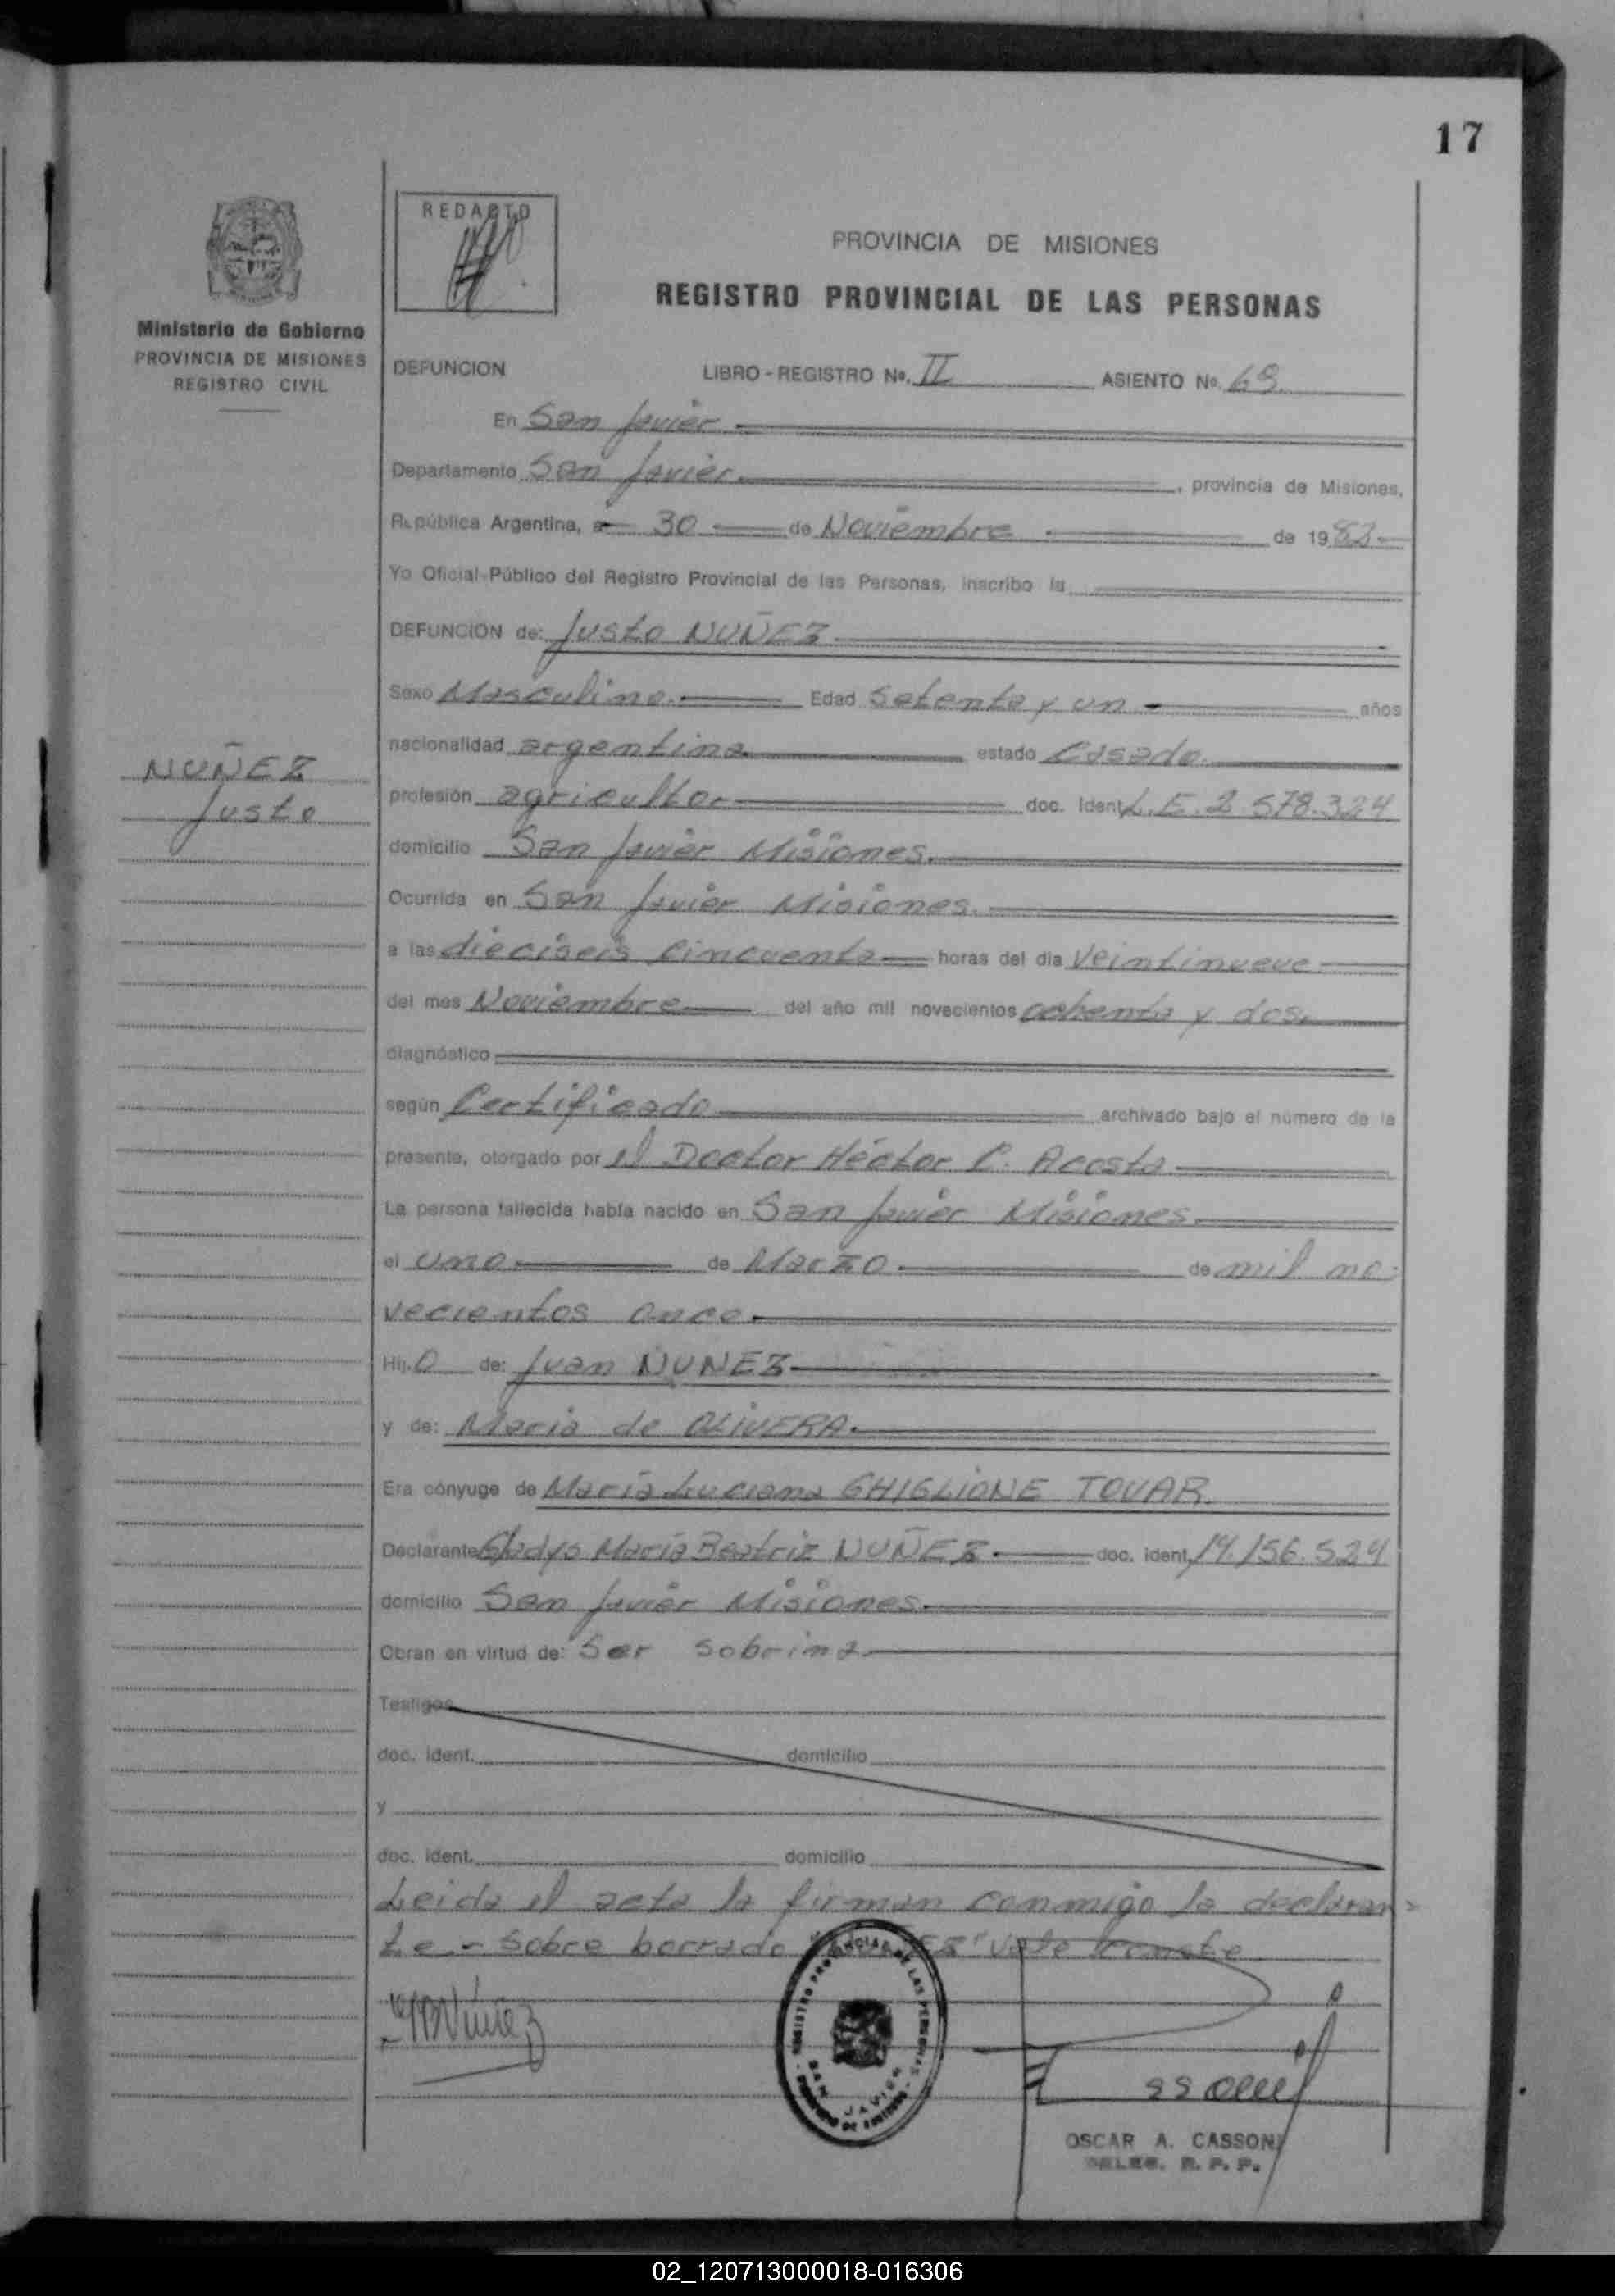 17
REDACTO
PROVINCIA DE MISIONES
REGISTRO PROVINCIAL DE LAS PERSONAS
Ministerio de Gobierno
PROVINCIA DE MISIONES
REGISTRO CIVIL
DEFUNCION LIBRO - REGISTRO No. II ASIENTO No. 69
En San Javier
Departamento San Javier, provincia de Misiones,
República Argentina, a 30 de Noviembre de 1982
Yo Oficial Público del Registro Provincial de las Personas, inscribo la
DEFUNCION de: Justo NUÑEZ
Sexo Masculino. Edad Setenta y un años
nacionalidad argentina estado Casado.
NUÑEZ
Justo
profesión agricultor doc. Ident. L.E. 2.578.324
domicilio San Javier Misiones.
Ocurrida en San Javier Misiones.
a las dieciseis cincuenta horas del día veintinueve
del mes Noviembre del año mil novecientos ochenta y dos.
diagnóstico
según Certificado archivado bajo el número de la
presente, otorgado por el Doctor Héctor C. Acosta
La persona fallecida había nacido en San Javier Misiones.
el uno de Marzo de mil no-
vecientos once.
Hij.o de: Juan NUÑEZ
y de: Maria de OLIVERA.
Era cónyuge de María Luciana GHIGLIONE TOVAR.
Declarante Gladys María Beatriz NUÑEZ doc. ident. 14.156.524
domicilio San Javier Misiones.
Obran en virtud de: Ser sobrina
Testigos
doc. ident. domicilio
y
doc. ident. domicilio
Leida el acta la firman conmigo la declaran-
te.- Sobre borrado "EZ" Vale
GMBNuñez
REGISTRO PROVINCIAL DE LAS PERSONAS
SAN JAVIER
OSCAR A. CASSONI
DELEG. R. P. P.
02_120713000018-016306